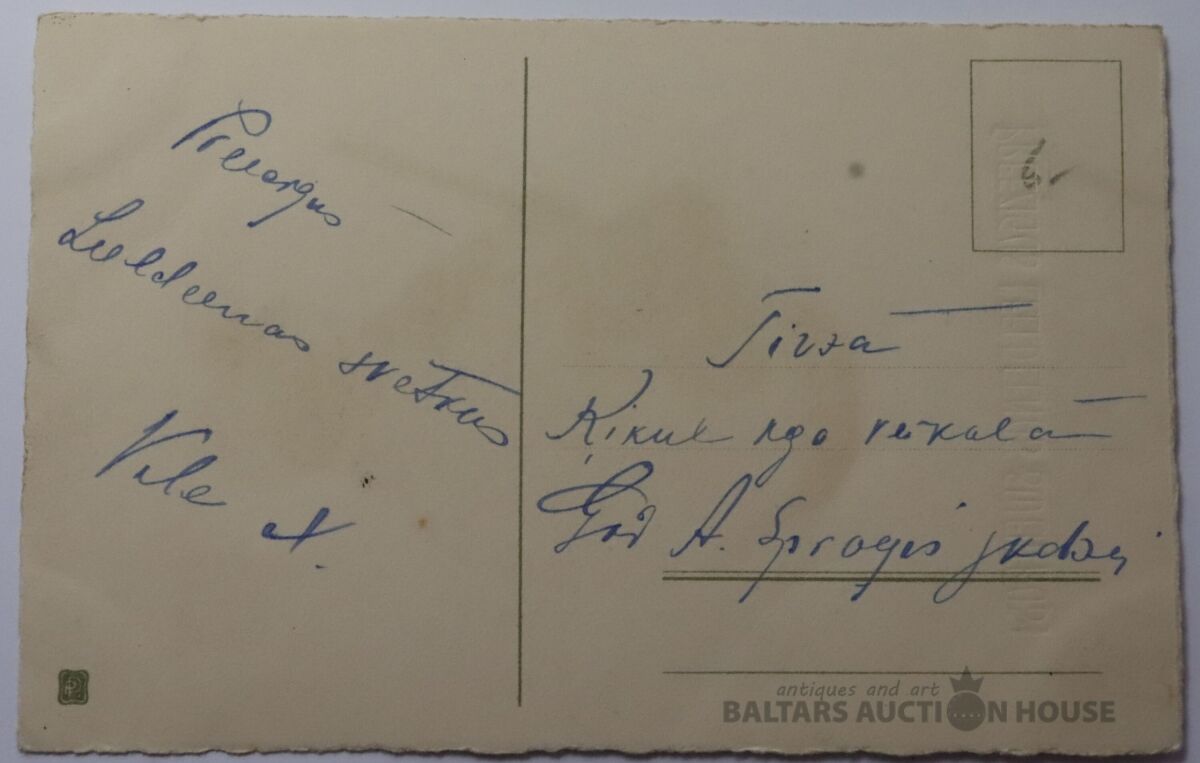 Priecīgus
Lieldienas svetkus
Vale A.
Tirzā
Ķikut kga veikalā
God A. Sprogis jkdzei
antiques and art
BALTARS AUCTION HOUSE